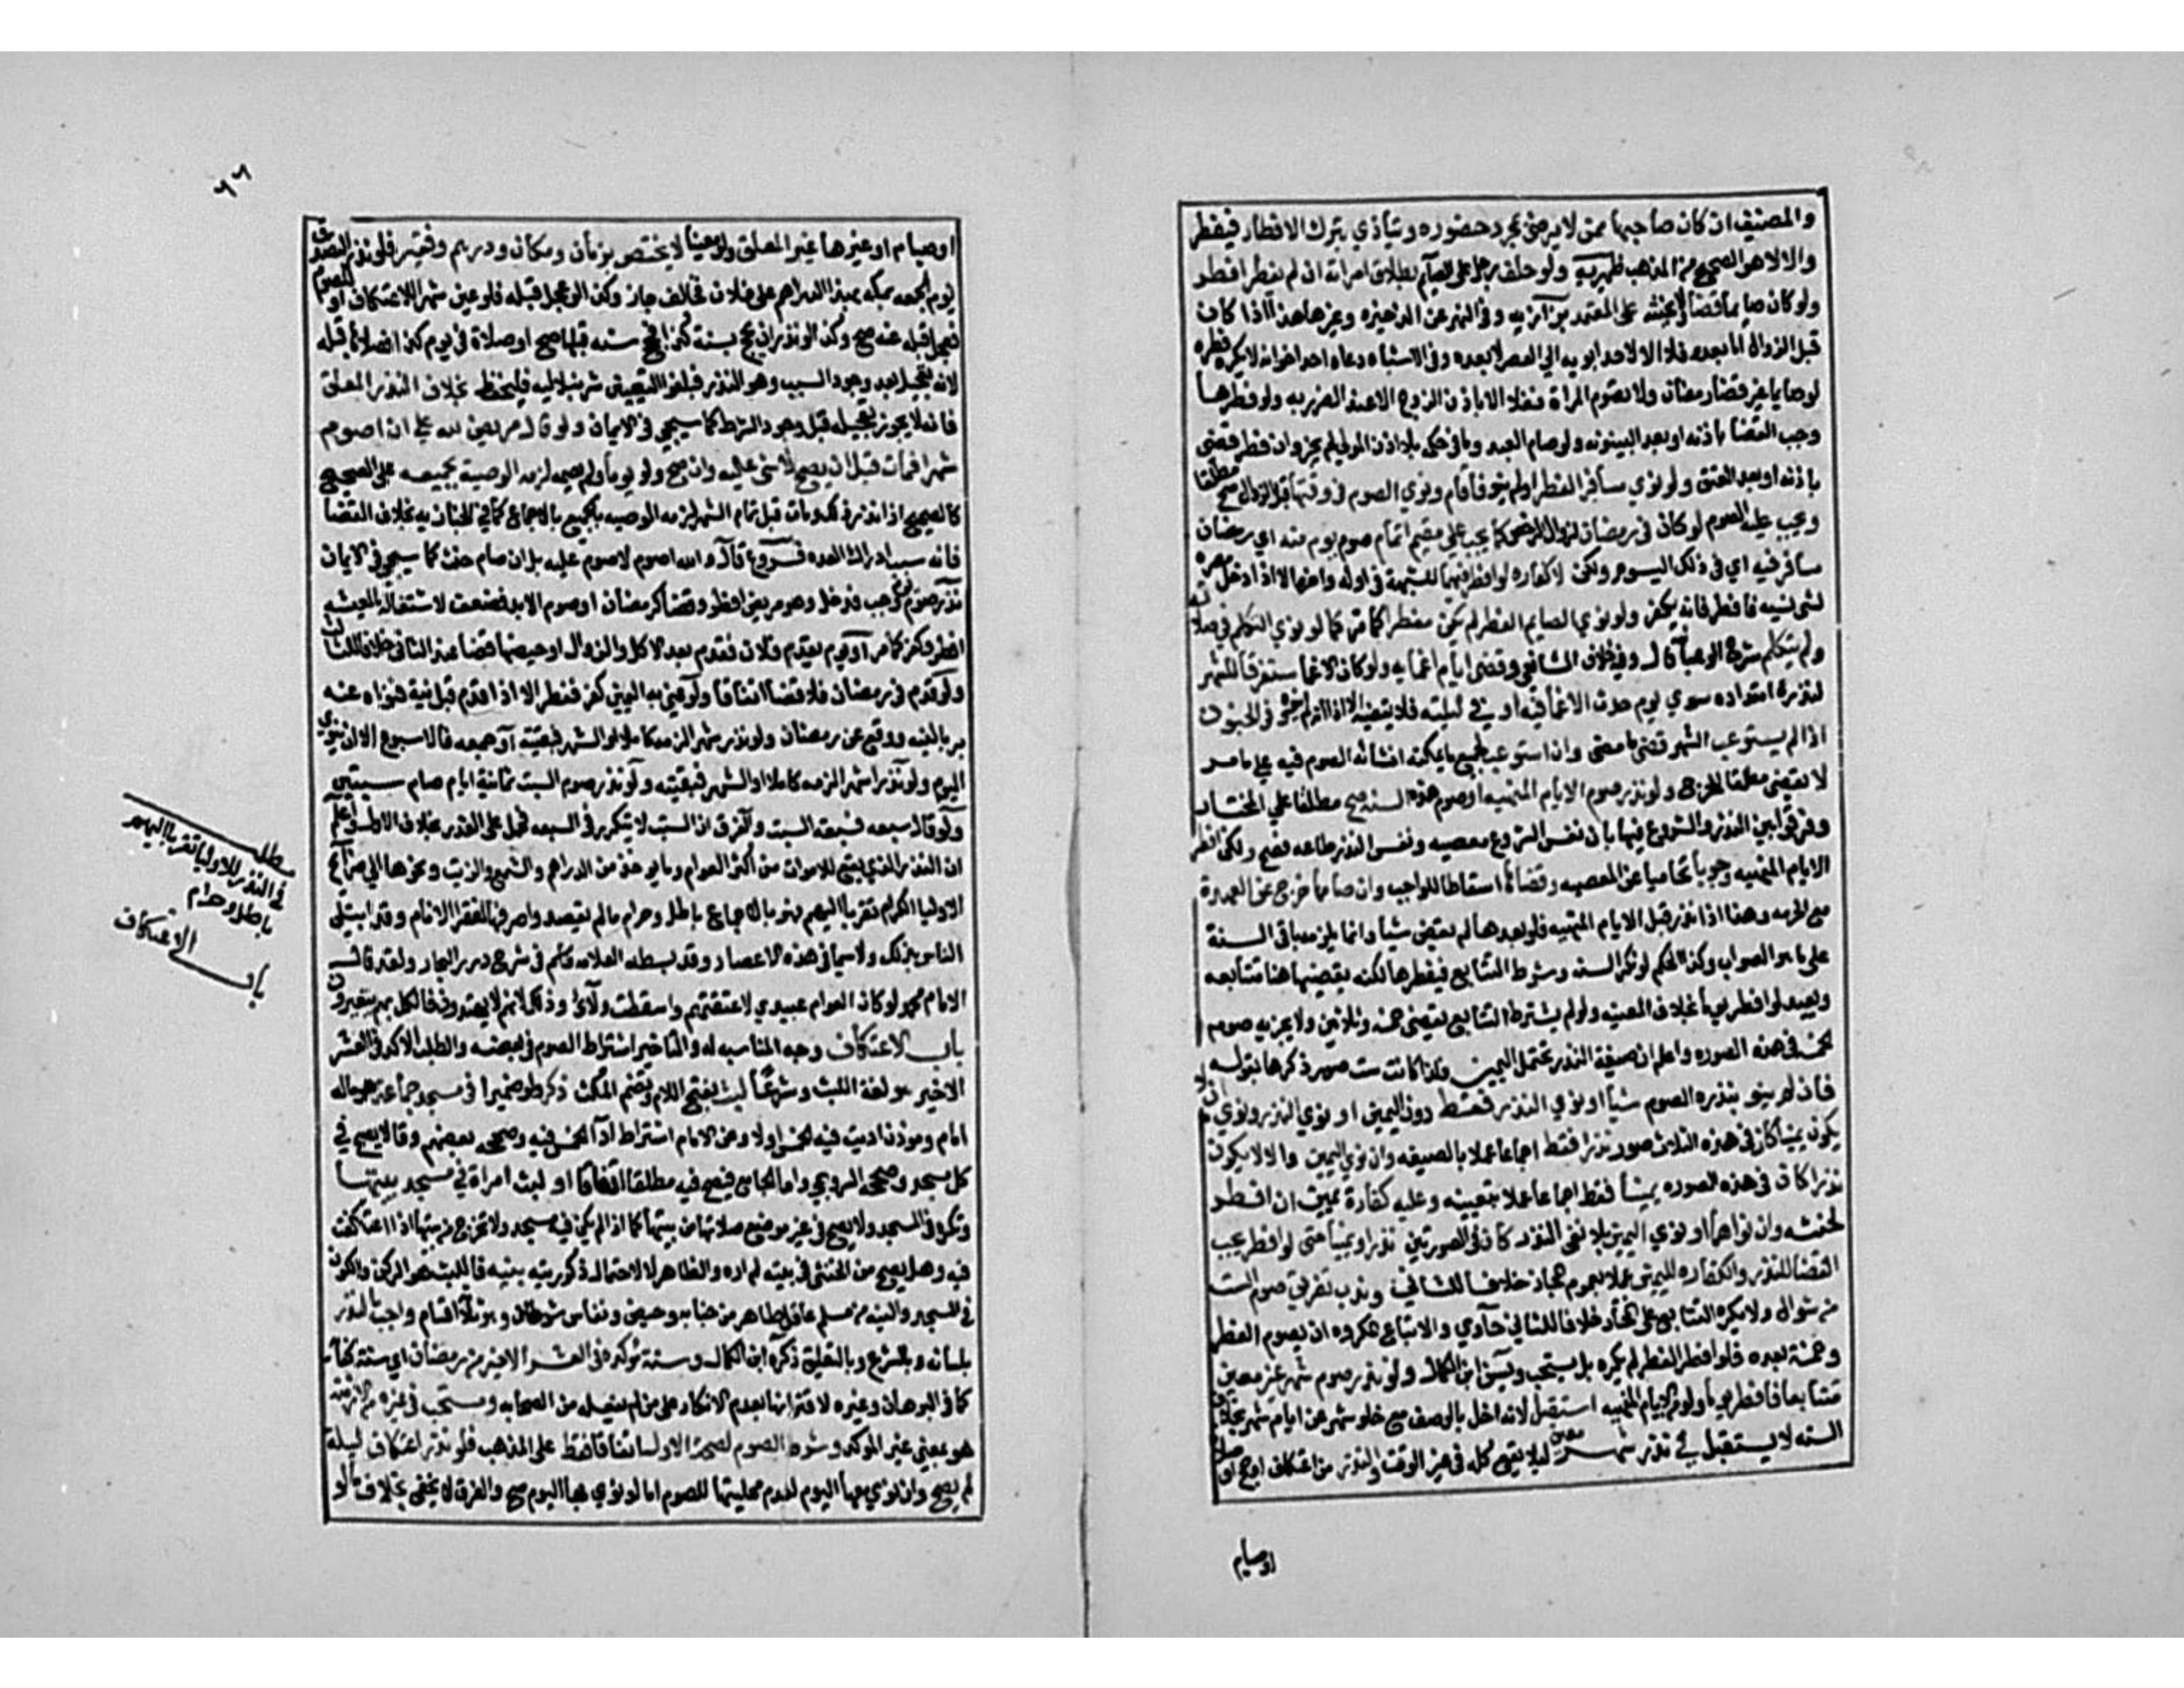 والمضيف ان كان صاحبها ممن لا يرضى بمجرد حضوره ويتأذي بترك الافطار فيفطر
والا لا هو الصحيح من المذهب ظهيرية ولو حلف رجل على الصايم بطلاق امراته ان لم يفطر افطر
ولو كان صايما قضا ولا يحنثه على المعتمد بزازيه وفي النهر عن الذخيره وغيرها هذا اذا كان
قبل الزوال اما بعده فلا الا لاحد ابويه الي العصر لا بعده وفي الاشباه دعاه احد اخوانه لا يكره فطره
لو صايما غير قضا رمضان ولا تصوم المراة نفلا الا باذن الزوج الا عند الضرر به ولو فطرها
وجب القضا باذنه او بعد البينونه ولو صام العبد وما في حكمه بلا اذن المولي لم يجز وان فطر قضى
باذنه او بعد العتق ولو نوي مسافر الفطر او لم ينو فاقام ونوي الصوم في وقتها قبل الزوال صح مطلقا
ويجب عليه الصوم لو كان في رمضان لزوال المرخص كما يجب علي مقيم اتمام صوم يوم منه اي رمضان
سافر فيه اي في ذلك اليوم ولكن لا كفاره لو افطر فيهما للشبهة في اوله واخره الا اذا دخل مصره
لشي نسيه فافطر فانه يكفر ولو نوي الصايم الفطر لم يكن مفطرا كما مر كما لو نوي التكلم في صلاته
ولم يتكلم شرح الوهبانية قال وفيه خلاف الشافعي وقضى ايام اغمايه ولو كان الاغما مستغرقا للشهر
لندرة امتداده سوي يوم حدث الاغما فيه او في ليلته فلا يقضيه الا اذا علم انه لم ينوه وفي الجنون
اذا لم يستوعب الشهر قضى ما مضى وان استوعب جميع ما يمكنه انشا الصوم فيه علي ما مر
لا يقضي مطلقا للحرج ولو نذر صوم الايام المنهيه او صوم هذه السنه صح مطلقا علي المختار
وفرقوا بين النذر والشروع فيها بان نفس الشروع معصيه ونفس النذر طاعه فصح ولكن افطر
الايام المنهيه وجوبا تحاميا عن المعصيه وقضاها اسقاطا للواجب وان صامها خرج عن العهدة
مع الحرمه وهذا اذا نذر قبل الايام المنهيه فلو بعدها لم يقض شيأ وانما يلزمه باقي السنة
علي ما هو الصواب وكذا الحكم لو نكر السنه وشرط التتابع فيفطرها لكنه يقضيها هنا متتابعه
ويعيد لو افطر يوما بخلاف المعينه ولو لم يشترط التتابع يقضي خمسه وثلاثين ولا يجزيه صوم
الخمسه في هذه الصوره واعلم ان صيغة النذر تحتمل اليمين فلذا كانت ست صور ذكرها بقوله
فان لم ينو بنذره الصوم شيأ او نوي النذر فقط دون اليمين او نوي النذر ونوي ان لا
يكون يمينا كان في هذه الثلاث صور نذرا فقط اجماعا عملا بالصيغه وان نوي اليمين وان لا يكون
نذرا كان في هذه الصوره يمينا فقط اجماعا عملا بتعيينه وعليه كفارة يمين ان افطر
لحنثه وان نواهما او نوي اليمين بلا نفي النذر كان في الصورتين نذرا ويمينا حتى لو افطر يجب
القضا للنذر والكفاره لليمين عملا بعموم المجاز خلافا للثاني وندب تفريق صوم الست
من شوال ولا يكره التتابع علي المختار خلافا للثاني حاوي والاتباع المكروه ان يصوم الفطر
وخمسة بعده فلو افطر الفطر لم يكره بل يستحب ويسن ابن الكمال ولو نذر صوم شهر غير معين
متتابعا فافطر يوما ولو من الايام المنهيه استقبل لانه اخل بالوصف مع خلو شهر عن ايام نهي بخلاف
السنه لا يستقبل في نذر شهر معين ليلا يقع كله في غير الوقت والنذر من اعتكاف او حج او صلاة
اوصيام
٦٦
او صيام او غيرها غير المعلق ولو معينا لا يختص بزمان ومكان ودرهم وفقير فلو نذر التصدق
يوم الجمعه بمكه بهذا الدراهم على فلان فخالف جاز وكذا لو عجل قبله فلو عين شهرا للاعتكاف او للصوم
فعجل قبله عنه صح وكذا لو نذر ان يحج سنة كذا فحج سنه قبلها صح او صلاة في يوم كذا فصلاها قبله
لانه تعجيل بعد وجود السبب وهو النذر فيلغو التعيين شرنبلاليه فليحفظ بخلاف النذر المعلق
فانه لا يجوز تعجيله قبل وجود الشرط كما سيجي في الايمان ولو قال مريض لله علي ان اصوم
شهرا فمات قبل ان يصح لا شي عليه وان صح ولو يوما ولم يصمه لزمه الوصية بجميعه على الصحيح
كالصحيح اذا نذر ذلك ومات قبل تمام الشهر لزمه الوصيه بالجميع بالاجماع كما في الخبازيه بخلاف القضا
فانه بسبب ادراك العده فروع قال والله اصوم لا صوم عليه بل ان صام حنث كما سيجي في الايمان
نذر صوم رجب فدخل وهو مريض افطر وقضا كرمضان او صوم الابد فضعف لاشتغاله بالمعيشه
افطر وكفر كما مر او يوم يقدم فلان فقدم بعد الاكل والزوال او حيضها قضا عند الثاني خلافا للثالث
ولو قدم في رمضان فلا قضا اتفاقا ولو عني به اليمين كفر فقط الا اذا قدم قبل نية فنواه عنه
بر بالنيه ووقع عن رمضان ولو نذر شهرا لزمه كاملا او الشهر فبقيته او جمعه فالاسبوع الا ان ينوي
اليوم ولو نذر شهرا لزمه كاملا او الشهر فبقيته ولو نذر صوم السبت ثمانية ايام صام سبتين
ولو قال سبعه فسبعة اسبت والفرق ان السبت لا يتكرر في السبعه فحمل على العدد بخلاف الاول واعلم
ان النذر الذي يقع للاموات من اكثر العوام وما يوخذ من الدراهم والشمع والزيت ونحوها الي ضرايح
الاوليا الكرام تقربا اليهم فهو بالاجماع باطل وحرام ما لم يقصدوا صرفها لفقرا الانام وقد ابتلى
الناس بذلك ولا سيما في هذه الاعصار وقد بسطه العلامه قاسم في شرح درر البحار ولقد قال
الامام محمد لو كان العوام عبيدي لاعتقتهم واسقطت ولآئي وذلك لانهم لا يهتدون فالكل بهم يتغيرون
باب الاعتكاف وجه المناسبه له والتاخير اشتراط الصوم في بعضه والطلب الاكد في العشر
الاخير هو لغة اللبث وشرعا لبث بفتح اللام وتضم المكث ذكر ولو مميزا في مسجد جماعة هو ما له
امام وموذن اديت فيه الخمس او لا وعن الامام اشتراط ادآ الخمس فيه وصححه بعضهم وقالا يصح في
كل مسجد وصححه السروجي واما الجامع فيصح فيه مطلقا اتفاقا او لبث امراة في مسجد بيتها
ويكره في المسجد ولا يصح في غير موضع صلاتها من بيتها كما اذا لم يكن فيه مسجد ولا تخرج من بيتها اذا اعتكفت
فيه وهل يصح من الخنثى في بيته لم اره والظاهر لا لاحتمال ذكوريته بنيه فاللبث هو الركن والكون
في المسجد والنيه من مسلم عاقل طاهر من جنابه وحيض ونفاس شرطان وهو ثلاثة اقسام واجب بالنذر
بلسانه وبالشرع وبالتعليق ذكره ابن الكمال وسنة موكده في العشر الاخير من رمضان اي سنة كفاية
كما في البرهان وغيره لاقترانها بعدم الانكار على من لم يفعله من الصحابه ومستحب في غيره من الازمنه
هو بمعني غير الموكد وشرط الصوم لصحة الاول اتفاقا فقط على المذهب فلو نذر اعتكاف ليلة
لم يصح وان نوي معها اليوم لعدم محليتها للصوم اما لو نوي بها اليوم صح والفرق لا يخفى بخلاف ما لو
مطلب
في النذر للاوليا تقربا اليهم
باطل وحرام
باب الاعتكاف